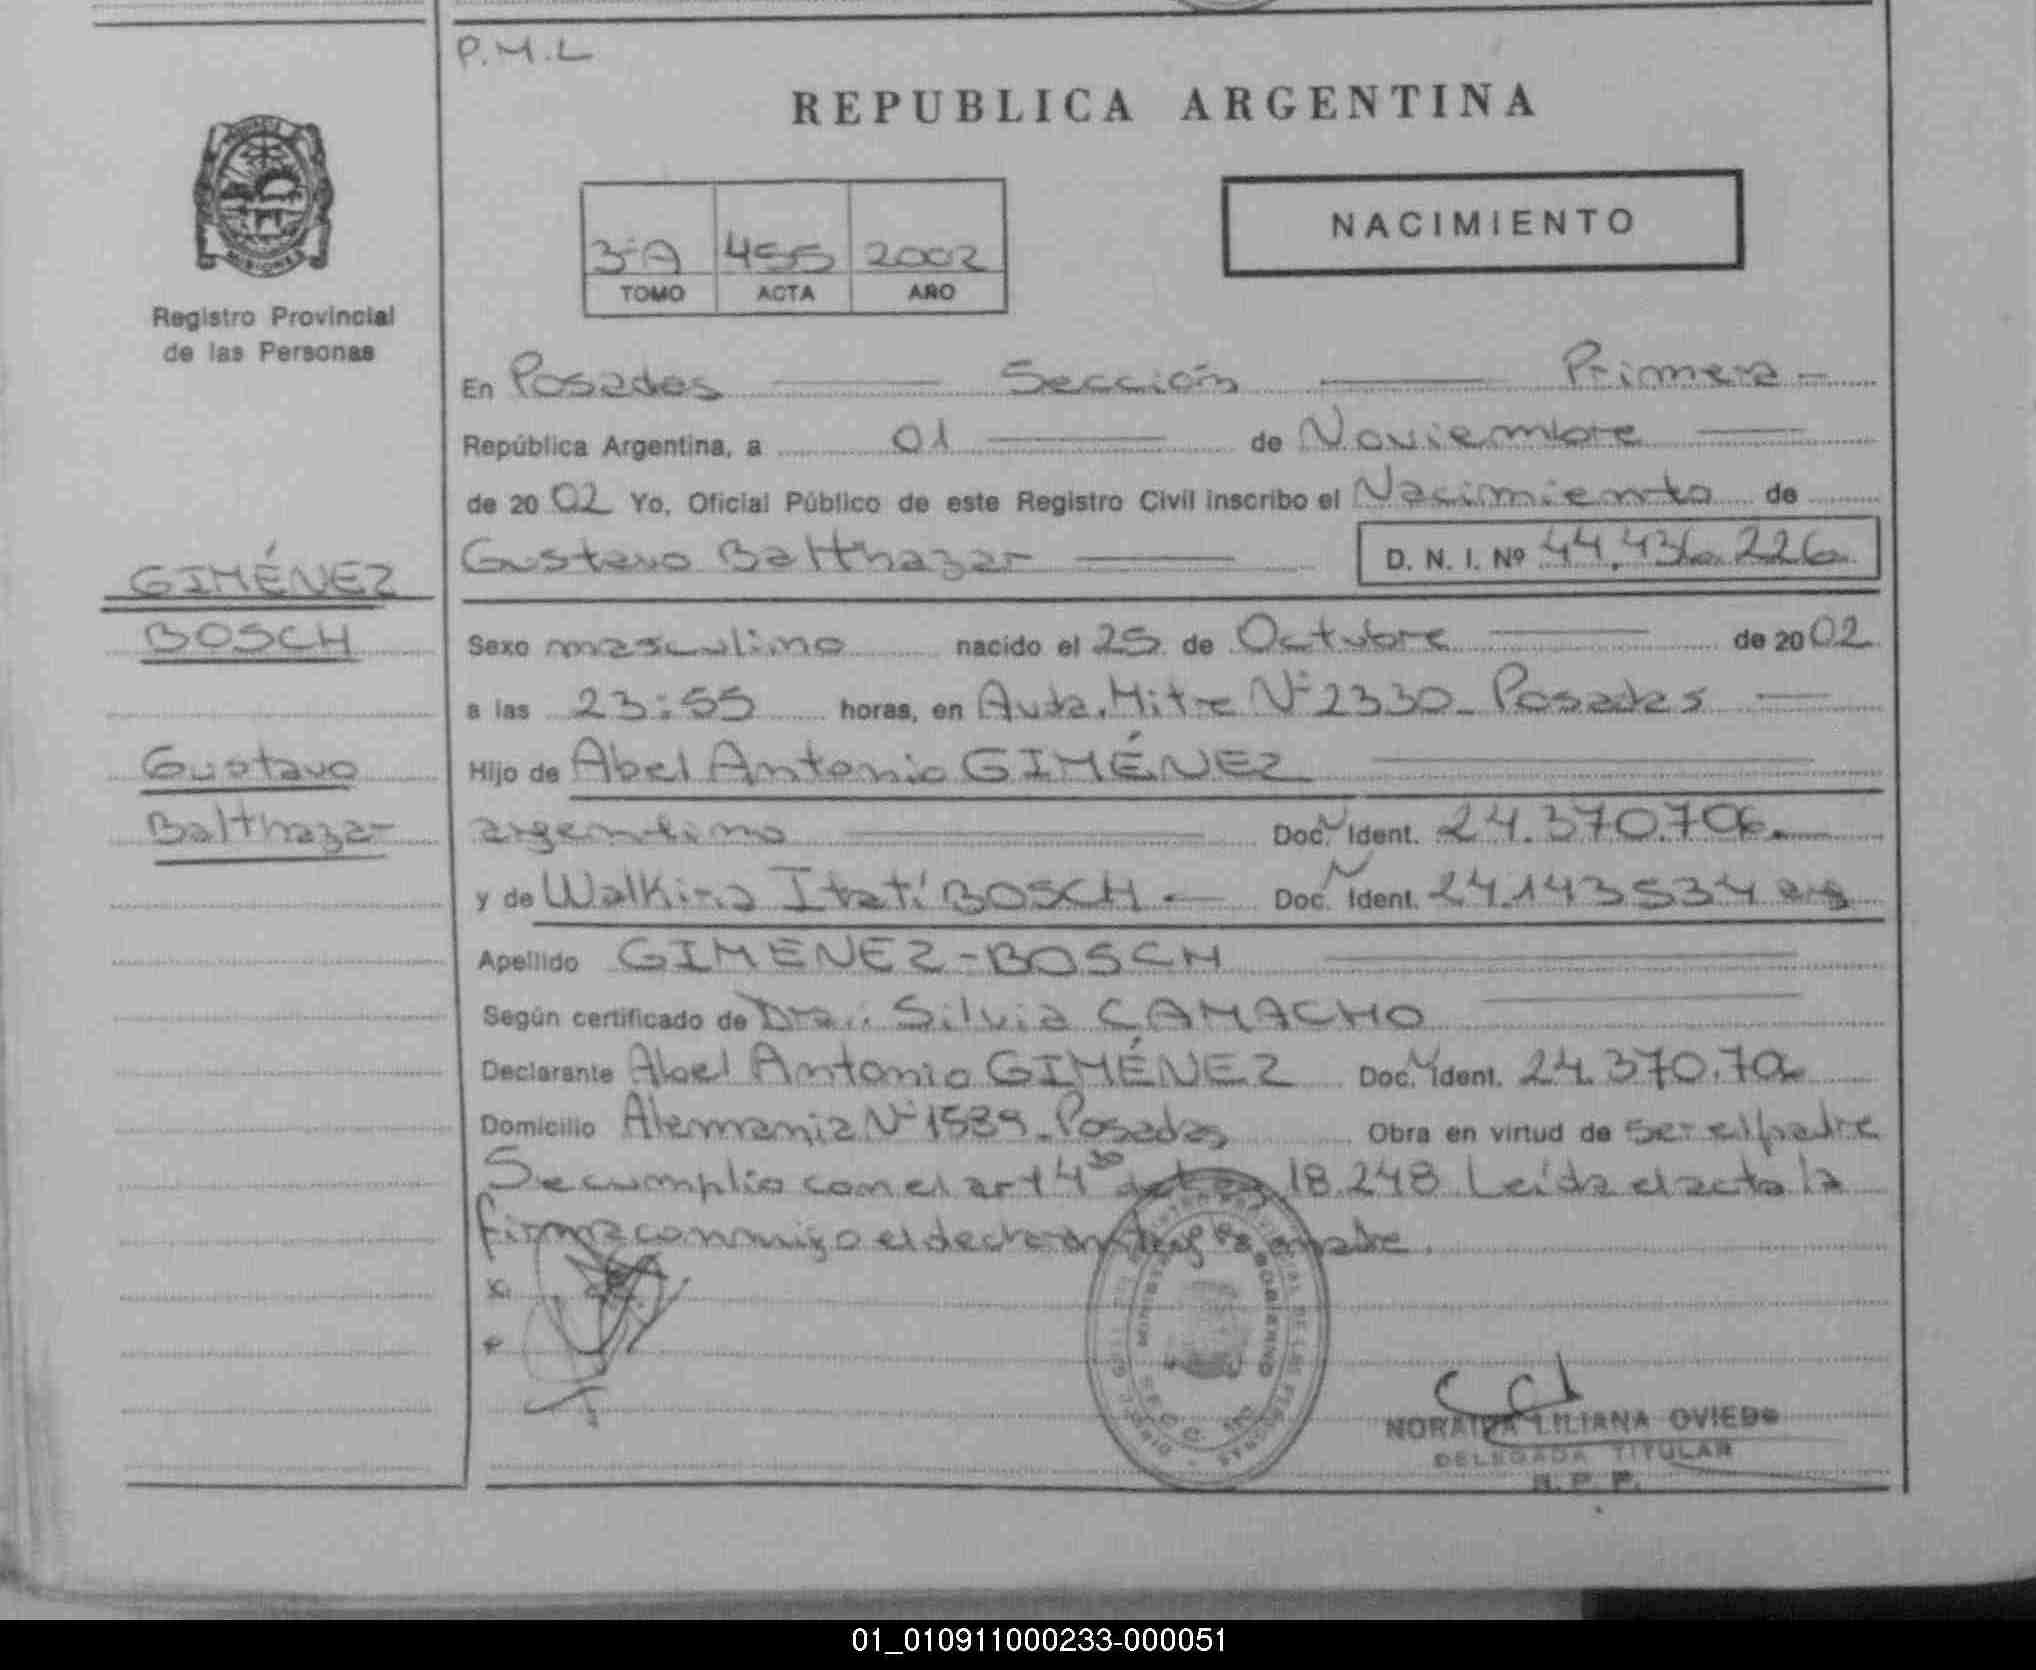 P.M.L
REPUBLICA ARGENTINA
MISIONES
Registro Provincial
de las Personas
3ºA 455 2002
TOMO ACTA AÑO
NACIMIENTO
En Posadas Sección Primera
República Argentina, a 01 de Noviembre
de 2002 Yo, Oficial Público de este Registro Civil inscribo el Nacimiento de
Gustavo Balthazar D. N. I. Nº 44.436.226
GIMÉNEZ
BOSCH
Gustavo
Balthazar
Sexo masculino nacido el 25 de Octubre de 2002
a las 23:55 horas, en Avda. Mitre Nº 2330 - Posadas
Hijo de Abel Antonio GIMÉNEZ
argentino Doc. Ident. 24.370.706
y de Walkiria Itatí BOSCH Doc. Ident. 24.143534 arg
Apellido GIMENEZ-BOSCH
Según certificado de Dra.: Silvia CAMACHO
Declarante Abel Antonio GIMÉNEZ Doc. Ident. 24.370.706
Domicilio Alemania Nº 1589 - Posadas Obra en virtud de ser el padre
Se cumplio con el art 4 18.248 Leída el acta la
firma conmigo el declarante y la madre.
MINISTERIO GOBIERNO
NORAIDA LILIANA OVIEDO
DELEGADA TITULAR
R. P. P.
01_010911000233-000051